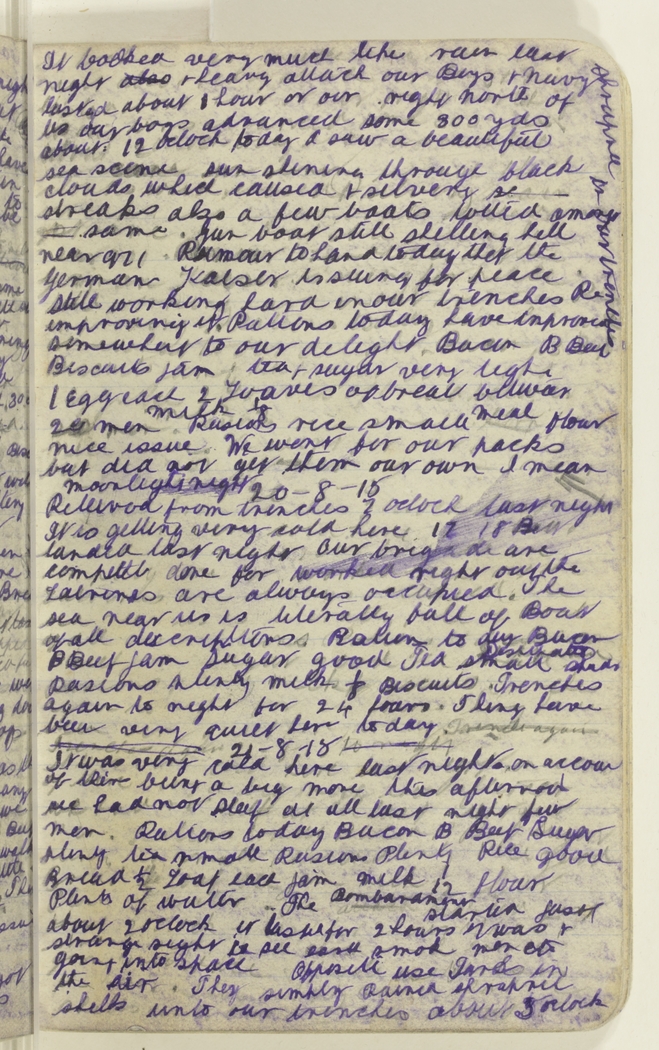 It looked very much like rain last
night also & heavy attack our Boys & Navy
lasted about 1 hour or our right north of
us our boys advanced some 300 yds
about 12 oclock today I saw a beautiful
sea scene sun shining through black
clouds which caused & silvery se
streaks also a few boats dotted among
same. Gun boat still shelling hell
near 971 Rumour to hand today that the
German Kaiser is suing for peace.
Still working hard in our trenches Re
improving it. Rations today have improved
somewhat to our delight. Bacon B Beef
Biscuits jam tea & sugar very light
1 Egg each 2 Loaves of bread between
20 men milk 1/8 Rasions rice small meal flour
nice issue. We went for our packs
but did not get them our own I mean
moonlight night 20-8-15
Relieved from trenches 7 oclock last night
It is getting very cold here. 17 18 Batt
landed last night Our brigade are
complett done for worked right out the
Latrines are always occupied. The
sea near us is literally full of Boat
of all discriptions. Ration to day Bacon
B Beef jam sugar good Tea small
Rasions plenty milk 1/8 Biscuits. Trenches
again to night for 24 hours. Things have
been very quiet here today. Trench again
21-8-15 to night
It was very cold here last night, on accou
of their being a big move this afternoon
we had not sleep at all last night few
men. Rations today Bacon B Beef Sugar
plenty tea small Rasions Plenty Rice good
Bread 1/2 Loaf each jam milk 12 flour
Plenty of water. The Bombardment started just
about 2 oclock it lasted for 2 hours it was &
strange sight to see earth smok men etc
going into space opposite use Turks in
the air. They simply rained shrapnel
shells into our trenches about 3 oclock
Shrapnel in our trenches